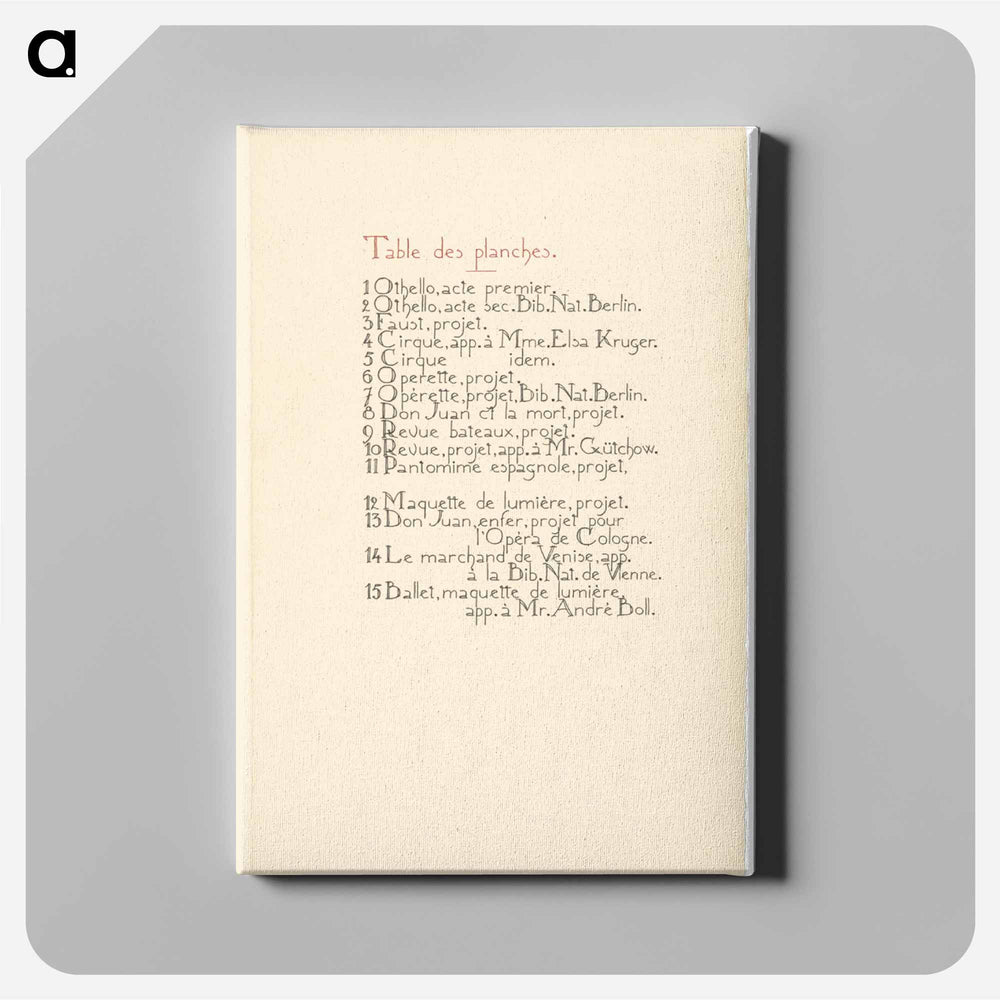 a.
Table des planches.
1 Othello, acte premier.
2 Othello, acte sec. Bib. Nat. Berlin.
3 Faust, projet.
4 Cirque, app. à Mme. Elsa Kruger.
5 Cirque idem.
6 Operette, projet.
7 Opérette, projet, Bib. Nat. Berlin.
8 Don Juan et la mort, projet.
9 Revue bateaux, projet.
10 Revue, projet, app. à Mr. Gütchow.
11 Pantomime espagnole, projet,
12 Maquette de lumière, projet.
13 Don Juan, enfer, projet pour
l'Opéra de Cologne.
14 Le marchand de Venise, app.
à la Bib. Nat. de Vienne.
15 Ballet, maquette de lumière,
app. à Mr. André Boll.